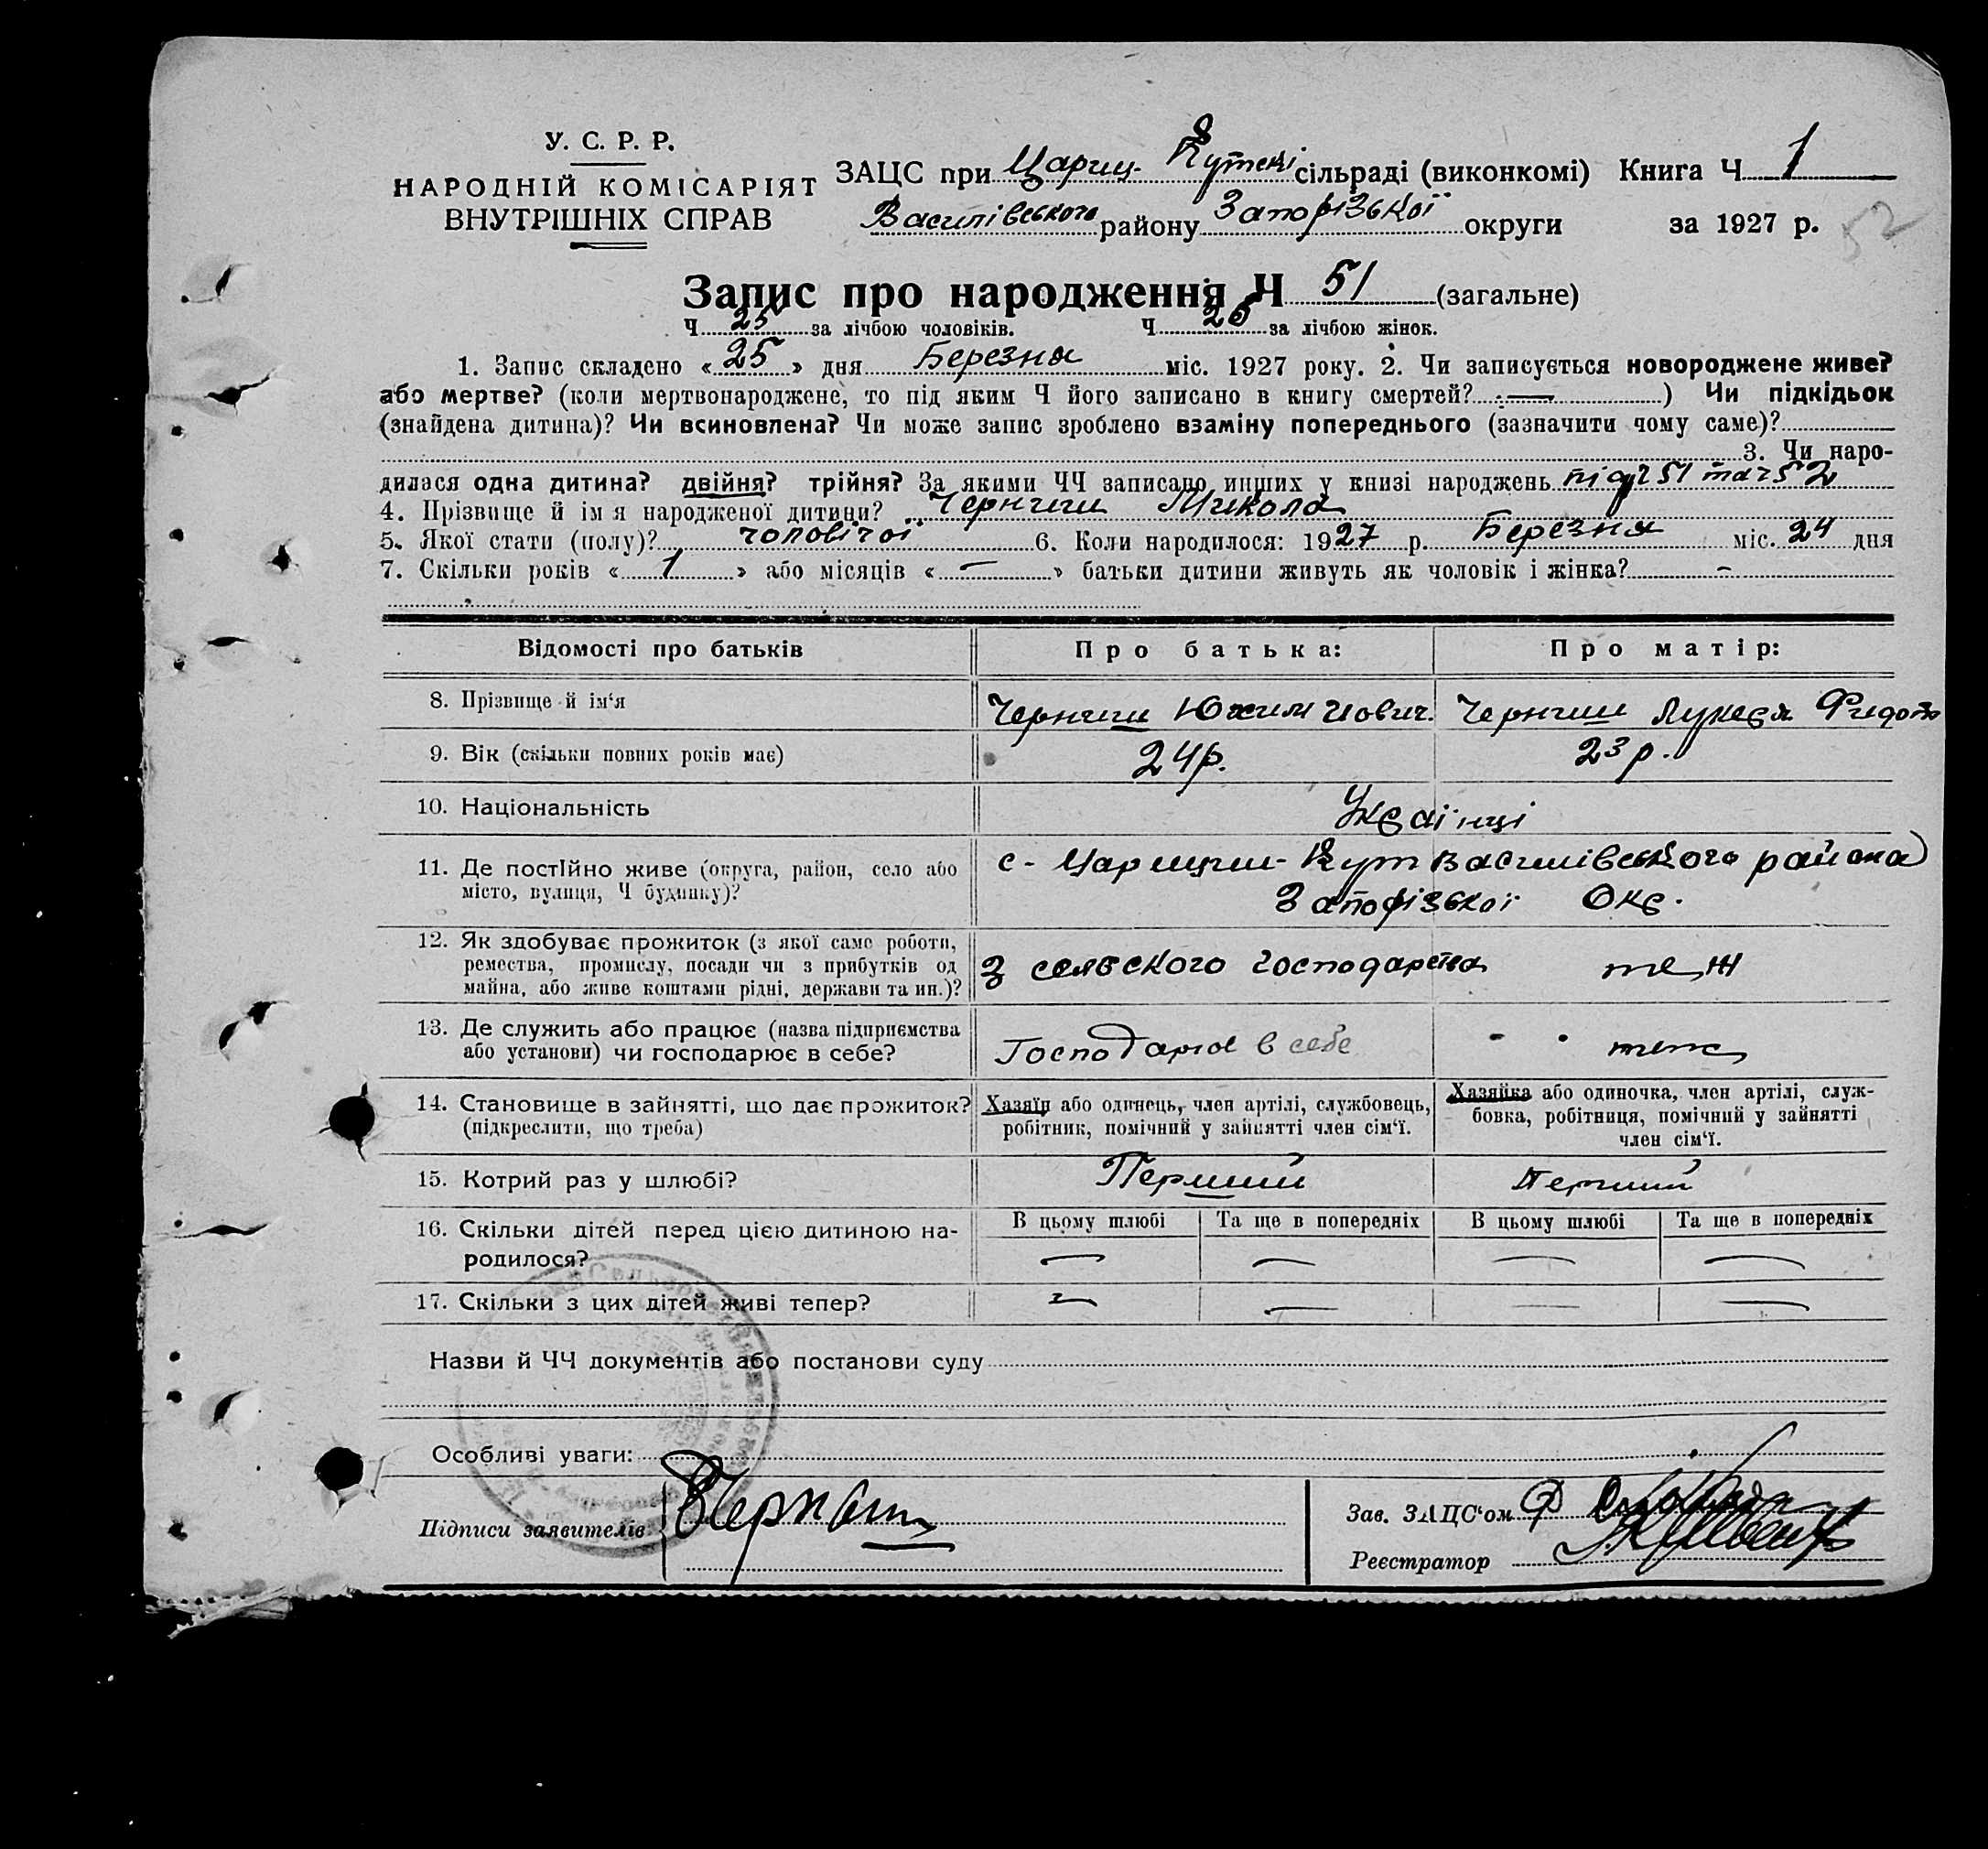 У. С. Р. Р.
НАРОДНІЙ КОМІСАРІЯТ
ВНУТРІШНІХ СПРАВ
ЗАЦС при Цариц. Кутскі сільраді (виконкомі) Книга Ч 1
Василівського району Запорізької округи за 1927 р.
52
Запис про народження Ч 51 (загальне)
Ч 25 за лічбою чоловіків. Ч 26 за лічбою жінок.
1. Запис складено « 25 » дня Березня міс. 1927 року. 2. Чи записується новороджене живе?
або мертве? (коли мертвонароджене, то під яким Ч його записано в книгу смертей? — ) Чи підкідьок
(знайдена дитина)? Чи всиновлена? Чи може запис зроблено взаміну попереднього (зазначити чому саме)?
3. Чи наро-
дилася одна дитина? двійня? трійня? За якими ЧЧ записано инших у книзі народжень під ч 51 та ч 52
4. Прізвище й імя народженої дитини? Черниш Микола
5. Якої стати (полу)? чоловічої 6. Коли народилося: 1927 р. Березня міс. 24 дня
7. Скільки років « 1 » або місяців « — » батьки дитини живуть як чоловік і жінка? -
Відомості про батьків Про батька: Про матір:
8. Прізвище й ім'я Черниш Юхим Иович. Черниш Лукеря Федот
9. Вік (скільки повних років має) 24р. 23р.
10. Національність Українці
11. Де постІйно живе (округа, район, село або с- Царицин-Кут Василівського района
місто, вулиця, Ч будинку)? Запорізької Окр.
12. Як здобуває прожиток (з якої саме роботи,
ремества, промислу, посади чи з прибутків од З сельского господарства теж
майна, або живе коштами рідні, держави та ин.)?
13. Де служить або працює (назва підприємства
або установи) чи господарює в себе? Господарює в себе - · теж
14. Становище в зайнятті, що дає прожиток? Хазяїн або одинець, член артілі, службовець, Хазяйка або одиночка, член артілі, служ-
(підкреслити, що треба) робітник, помічний у зайнятті член сім'ї. бовка, робітниця, помічний у зайнятті
член сім'ї.
15. Котрий раз у шлюбі? Перший Перший
16. Скільки дітей перед цією дитиною на- В цьому шлюбі Та ще в попередніх В цьому шлюбі Та ще в попередніх
родилося? — — — —
17. Скільки з цих дітей живі тепер? — — — —
Назви й ЧЧ документів або постанови суду
Особливі уваги:
Підписи заявителів Черниш
Зав. ЗАЦС'ом
Реєстратор